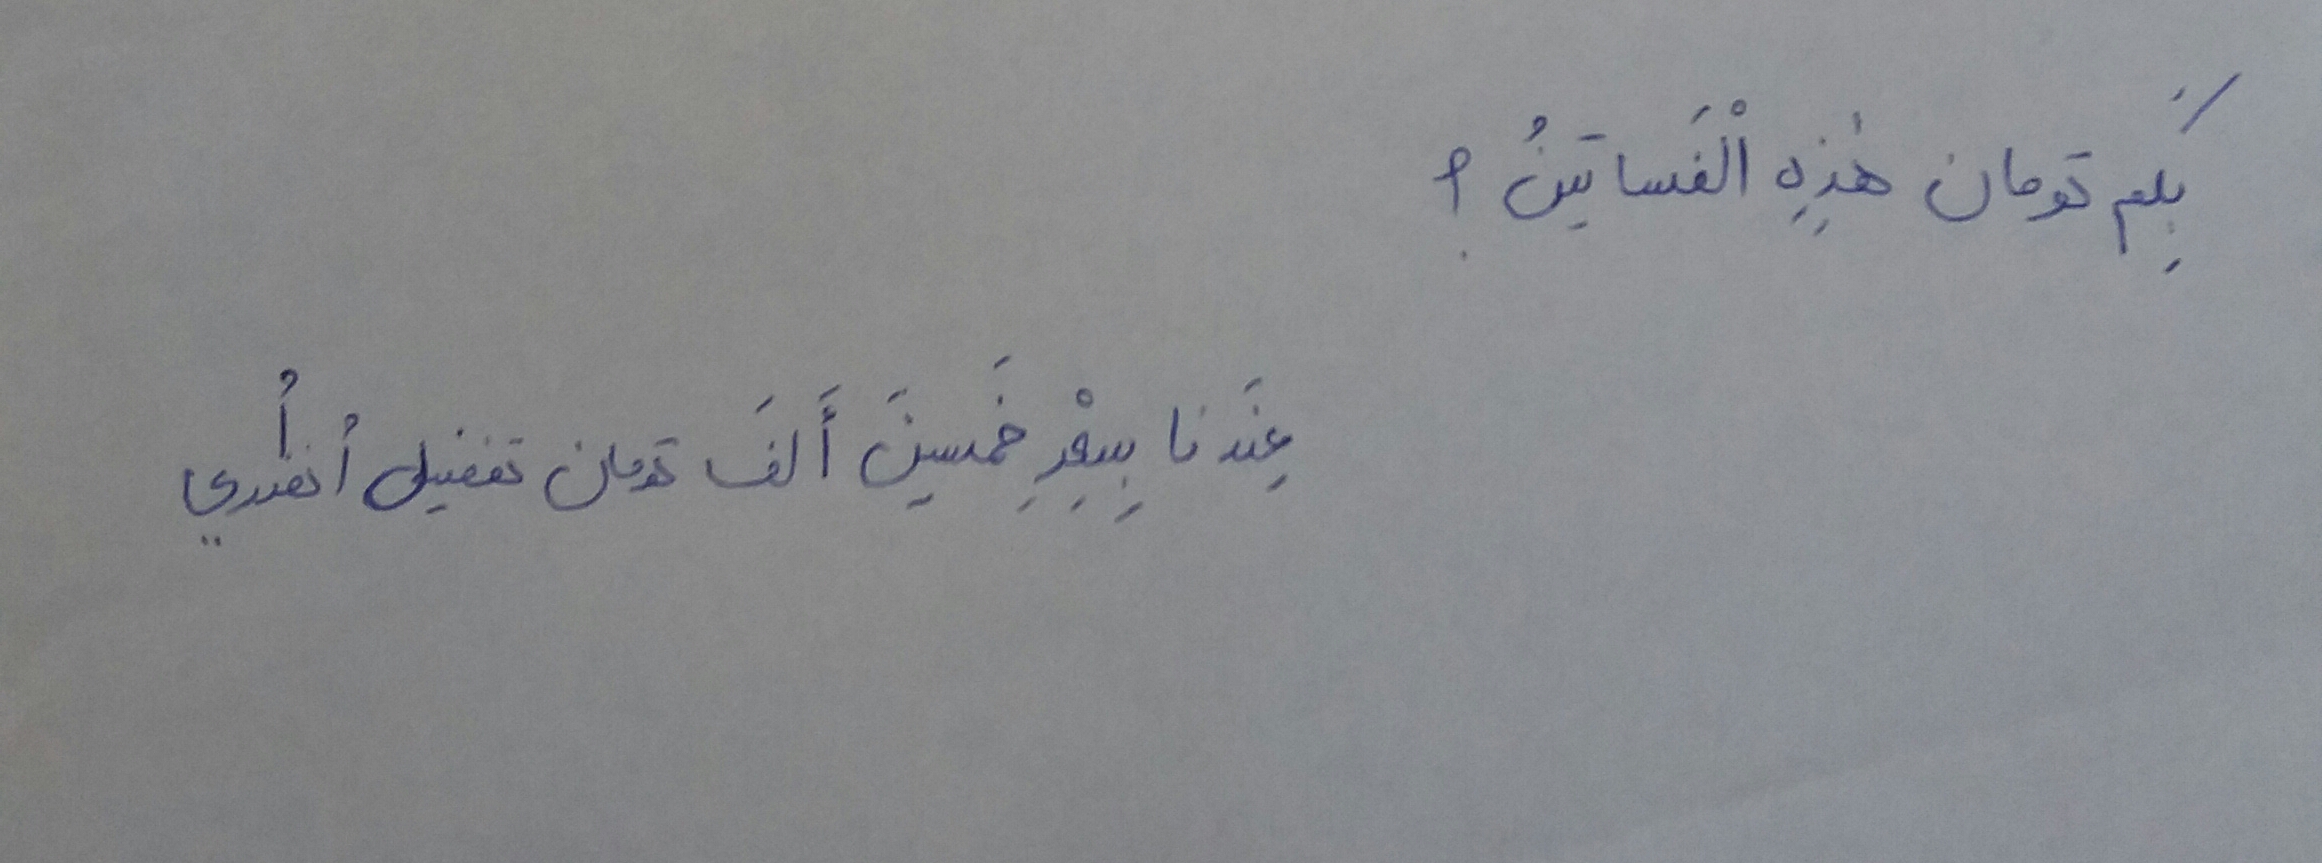 بِکَم تومان هٰذِهِ الْفَساتینُ ؟
عِنَدنا بِسِعْرِ خَمسینَ أَلفَ تومان تفضیلي اُنظُري